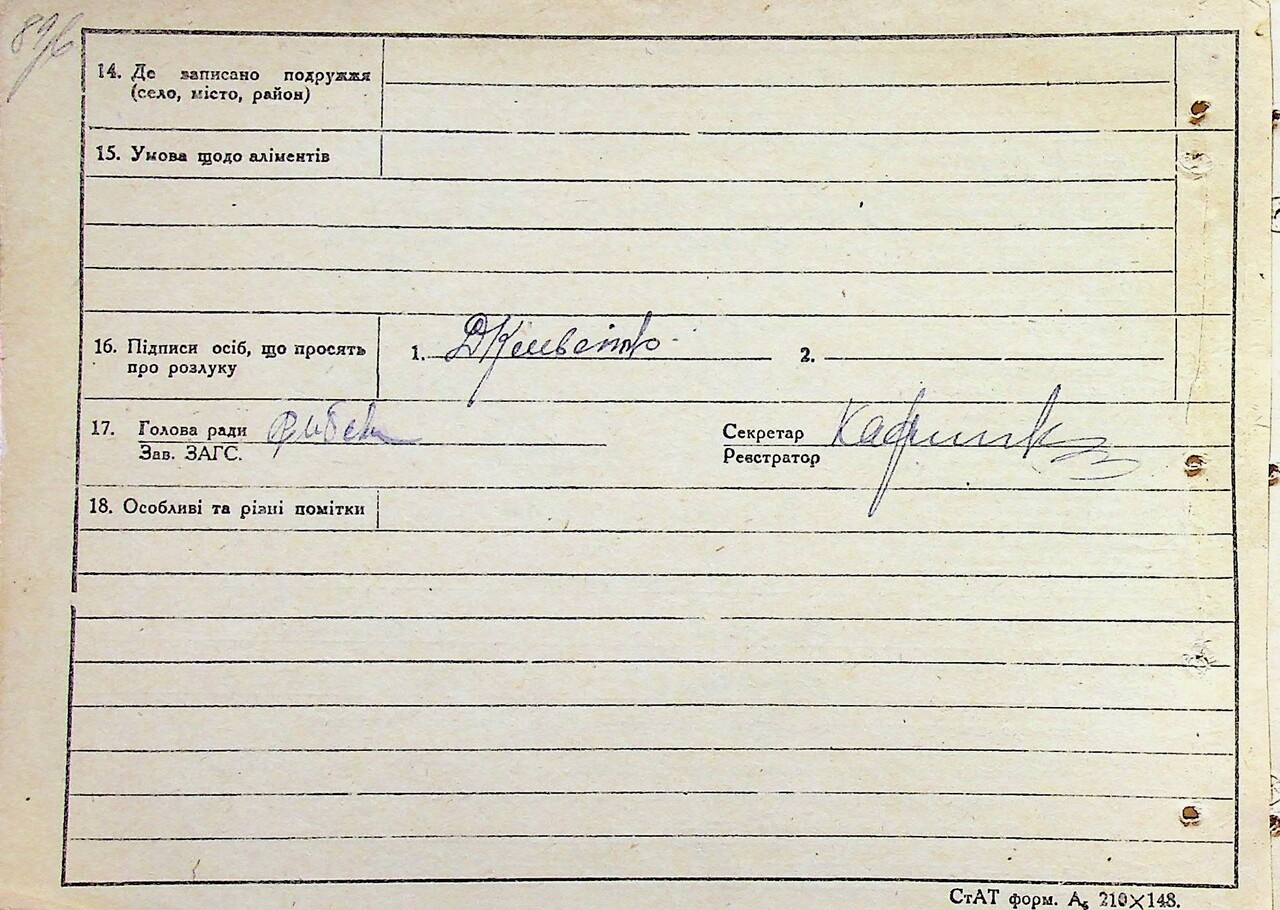 14. Де записано подружжя
(село, місто, район)
15. Умова щодо аліментів
16. Підписи осіб, що просять
про розлуку
1.
2.
17. Голова ради
Зав. ЗАГС.
Секретар
Реєстратор
18. Особливі та різні помітки
СтАТ форм. А₅ 210×148.